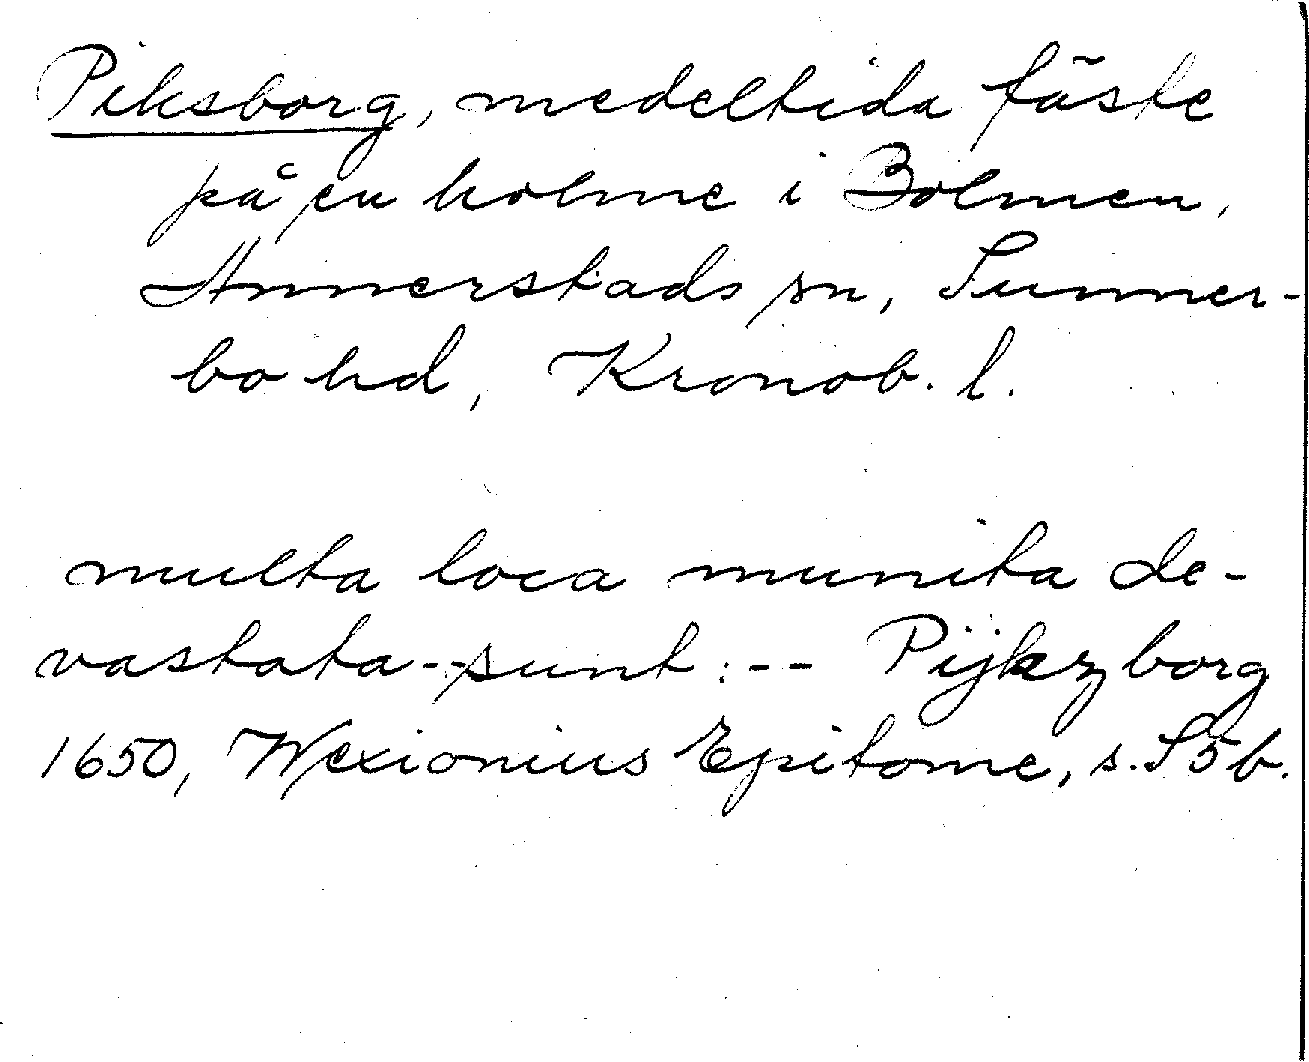 Piksborg, medeltida fäste
på en holme i Bolmen,
Annerstads sn, Sunner-
bo hd, Kronob. l.
multa loca munita de-
vastata - sunt: -- Pijkzborg
1650, Wexionius Epitome, s. S5b.